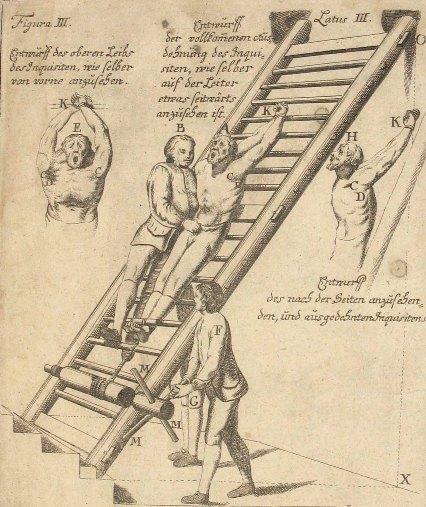 Figura III.
Latus III.
Entwurff
der vollkom̄enen Aus
dehnung des Inqui-
siten, wie selber
auf der Leiter
etwas seitwärts
anzusehen ist.
Entwurff des oberen Leibs
des Inquisiten, wie selber
von vorne anzusehen.
K
E
C
B
K
C
D
K
H
C
D
Entwurff
des nach der Seiten anzusehen-
den, und ausgedehnten Inquisitens
F
M
G
M
M
X